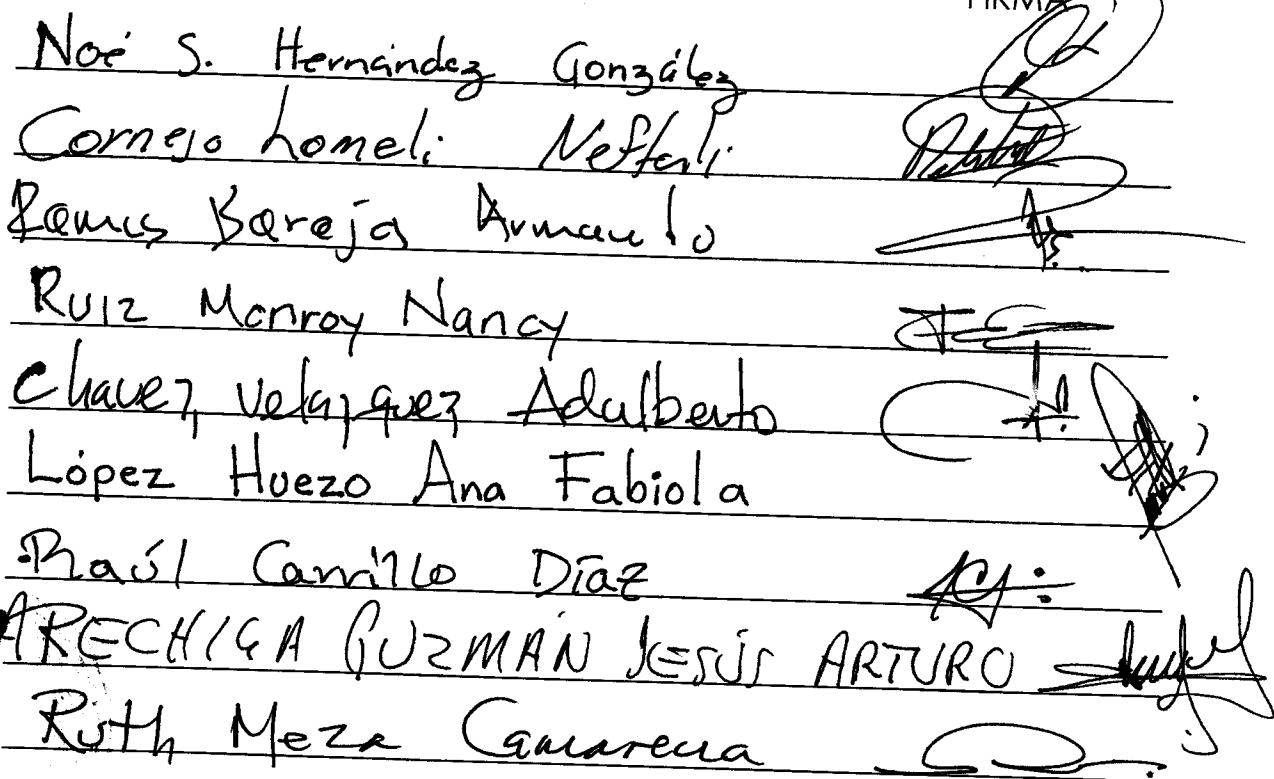 FIRMA
Noé S. Hernández González
Cornejo Lomelí Neftali
Ramos Baraja Armando
Ruiz Monroy Nancy
Chavez Velazquez Adalberto
López Huezo Ana Fabiola
Raúl Carrillo Díaz
ARECHIGA GUZMÁN JESÚS ARTURO
Ruth Meza Camarena